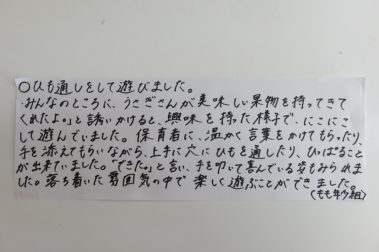 ○ひも通しをして遊びました。
・みんなのところに、うさぎさんが美味しい果物を持ってきて
くれたよ。」と誘いかけると、興味を持った様子で、にこにこ
して遊んでいました。保育者に、温かく言葉をかけてもらったり、
手を添えてもらいながら、上手に穴にひもを通したり、ひっぱること
が出来ていました。「できた。」と言い、手を叩いて喜んでいる姿もみられま
した。落ち着いた雰囲気の中で楽しく遊ぶことができました。
(もも年少組)